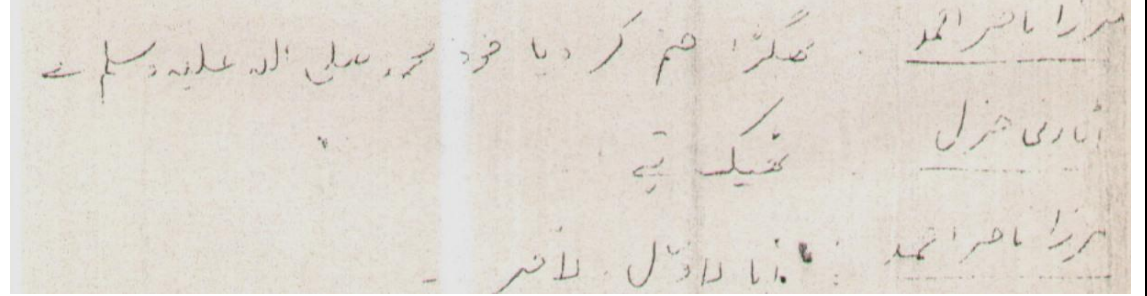 مرزا ناصر احمد : جھگڑا ختم کر دیا خود محمد صلی اللہ علیہ وسلم نے
اٹارنی جنرل : ٹھیک ہے
مرزا ناصر احمد : انا الاول الآخر -